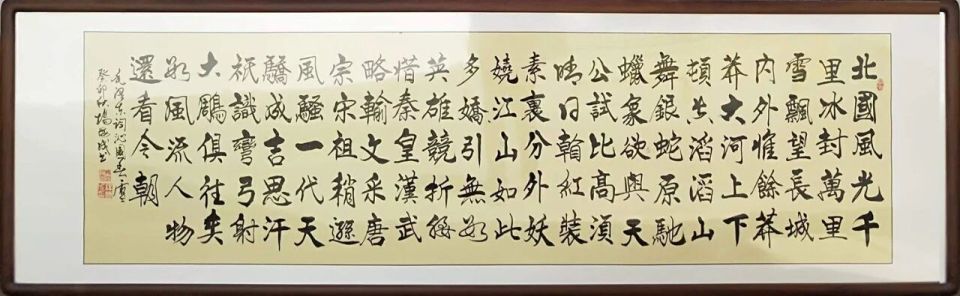 北國風光千
里冰封萬里
雪飄望長城
内外惟餘莽
莽大河上下
頓失滔滔山
舞銀蛇原馳
蠟象欲與天
公試比高須
晴日翰紅裝
素裹分外妖
嬈江山如此
多嬌引無數
英雄競折腰
惜秦皇漢武
略輸文采唐
宗宋祖稍遜
風騷一代天
驕成吉思汗
祇識彎弓射
大鵰俱往矣
數風流人物
還看今朝
毛澤東詞沁園春雪
癸卯秋楊成書